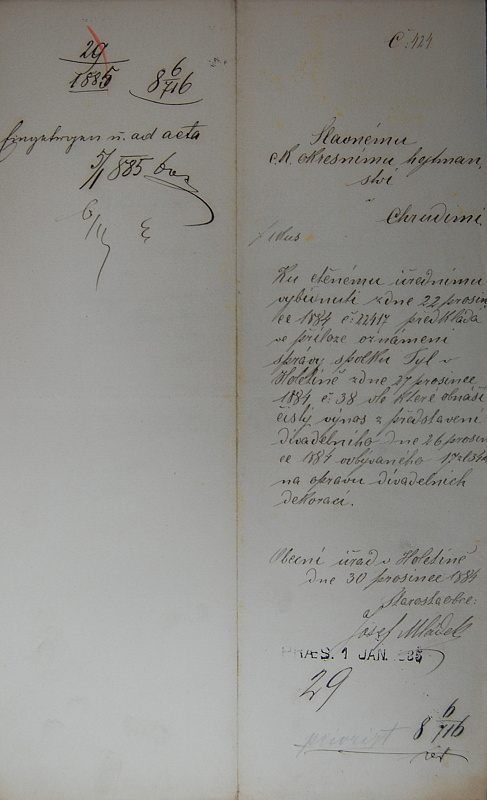 29
1885
8 6/716
Eingetragen u. ad acta
5/1 885
6/1
Č: 424
Slavnému
c.k. okresnímu hejtman,
ství
v
Chrudimi.
Ku ctěnému úřednímu
vybídnutí zdne 22 prosin
ce 1884 č: 22417 předkládá
se příloze oznámení
správy spolku Tyl v
Holetíně zdne 27 prosince
1884 č 38 dle které obnáší
čistý výnos z představení
divadelního dne 26 prosin
ce 1884 odbývaného 17 zl
na opravu divadelních
dekorací.
Obecní úřad v Holetíně
dne 30 prosince 1884
Starosta obce:
Josef Mládek
PRÆS. 1 JAN. 885
29
8 6/716